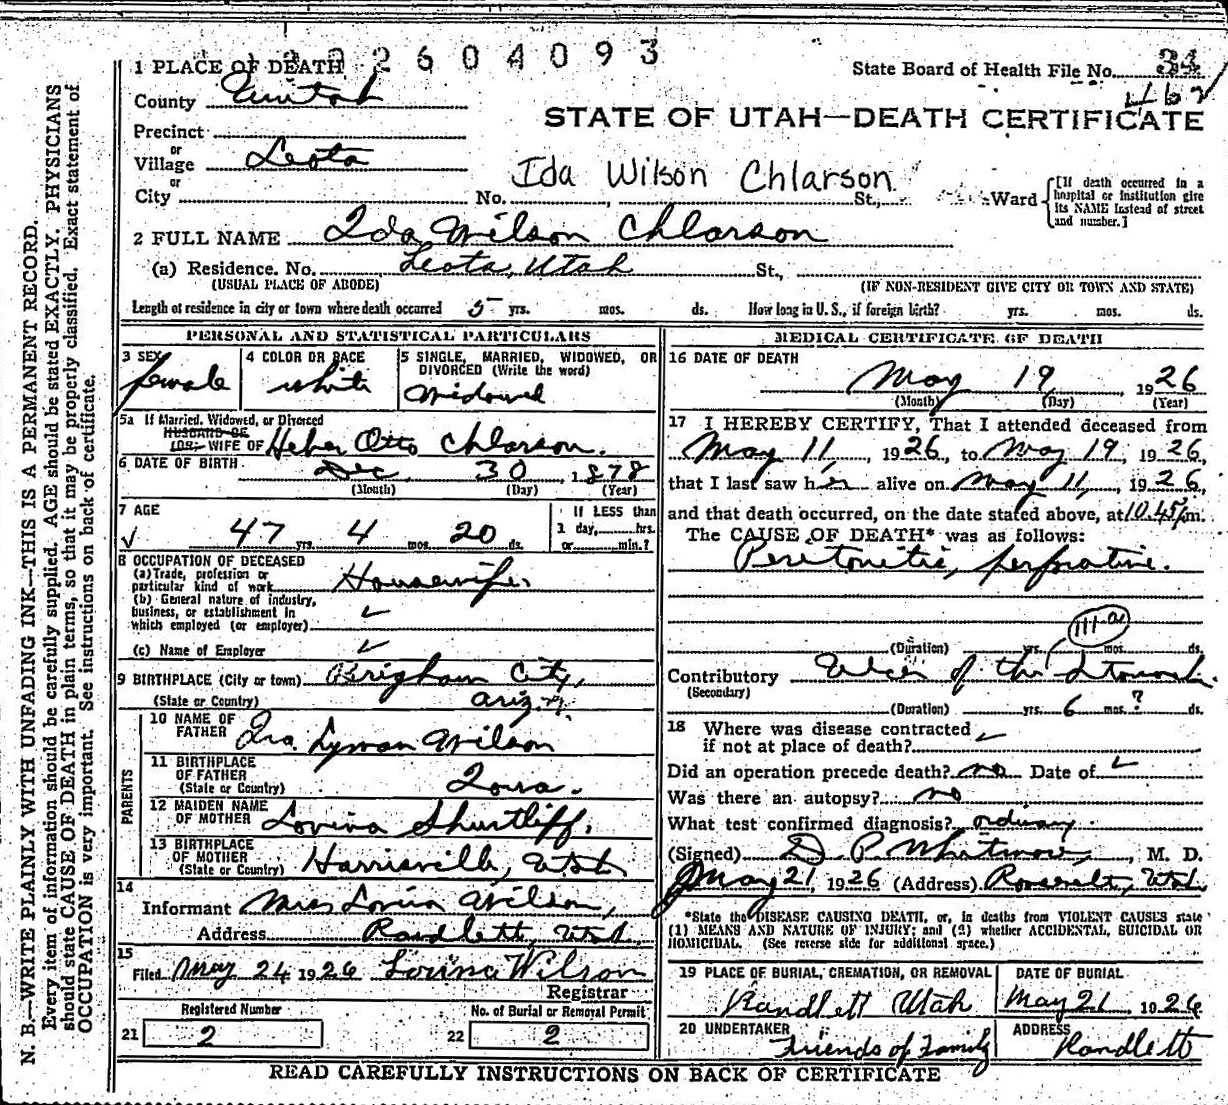 2 2 6 0 4 0 9 3
1 PLACE OF DEATH
State Board of Health File No. 34
462
County Uintah
STATE OF UTAH—DEATH CERTIFICATE
Precinct
or
Village Leota
or
City
Ida Wilson Chlarson
No. St., Ward
[If death occurred in a hospital or institution give its NAME instead of street and number.]
2 FULL NAME Ida Wilson Chlarson
(a) Residence. No. Leota, Utah St.,
(USUAL PLACE OF ABODE) (IF NON-RESIDENT GIVE CITY OR TOWN AND STATE)
Length of residence in city or town where death occurred 5 yrs. mos. ds. How long in U. S., if foreign birth? yrs. mos. ds.
PERSONAL AND STATISTICAL PARTICULARS
3 SEX
female
4 COLOR OR RACE
white
5 SINGLE, MARRIED, WIDOWED, OR DIVORCED (Write the word)
Widowed
5a If Married, Widowed, or Divorced
HUSBAND OF
(OR) WIFE OF Heber Otto Chlarson.
6 DATE OF BIRTH Dec 30, 1878
(Month) (Day) (Year)
7 AGE
√ 47 yrs. 4 mos. 20 ds.
If LESS than
1 day, hrs.
or min.?
8 OCCUPATION OF DECEASED
(a) Trade, profession or
particular kind of work Housewife.
(b) General nature of industry,
business, or establishment in
which employed (or employer) ✓
(c) Name of Employer ✓
9 BIRTHPLACE (City or town) Brigham City,
(State or Country) Ariz.
PARENTS
10 NAME OF FATHER Ira Lyman Wilson
11 BIRTHPLACE OF FATHER
(State or Country) Iowa.
12 MAIDEN NAME OF MOTHER Lovina Shurtliff.
13 BIRTHPLACE OF MOTHER
(State or Country) Harrisville, Utah
14
Informant Mrs Lovina Wilson,
Address Randlett, Utah.
15
Filed May 24 1926 Lovina Wilson
Registrar
Registered Number
21 2
No. of Burial or Removal Permit
22 2
MEDICAL CERTIFICATE OF DEATH
16 DATE OF DEATH
May 19 1926
(Month) (Day) (Year)
17 I HEREBY CERTIFY, That I attended deceased from
May 11, 1926, to May 19, 1926,
that I last saw her alive on May 11, 1926,
and that death occurred, on the date stated above, at 10.45 pm.
The CAUSE OF DEATH* was as follows:
Peritonitis, perforative.
111a
(Duration) yrs. mos. ds.
Contributory Ulcer of the Stomach.
(Secondary)
(Duration) yrs. 6 mos. ? ds.
18 Where was disease contracted
if not at place of death? ✓
Did an operation precede death? no Date of ✓
Was there an autopsy? no
What test confirmed diagnosis? ordinary.
(Signed) D. P. Whitmore, M. D.
May 21, 1926 (Address) Roosevelt, Utah
*State the DISEASE CAUSING DEATH, or, in deaths from VIOLENT CAUSES state
(1) MEANS AND NATURE OF INJURY; and (2) whether ACCIDENTAL, SUICIDAL OR
HOMICIDAL. (See reverse side for additional space.)
19 PLACE OF BURIAL, CREMATION, OR REMOVAL
Randlett Utah
DATE OF BURIAL
May 21 1926
20 UNDERTAKER
Friends of Family
ADDRESS
Randlett
READ CAREFULLY INSTRUCTIONS ON BACK OF CERTIFICATE
N. B.—WRITE PLAINLY WITH UNFADING INK—THIS IS A PERMANENT RECORD.
Every item of information should be carefully supplied. AGE should be stated EXACTLY. PHYSICIANS
should state CAUSE OF DEATH in plain terms, so that it may be properly classified. Exact statement of
OCCUPATION is very important. See instructions on back of certificate.